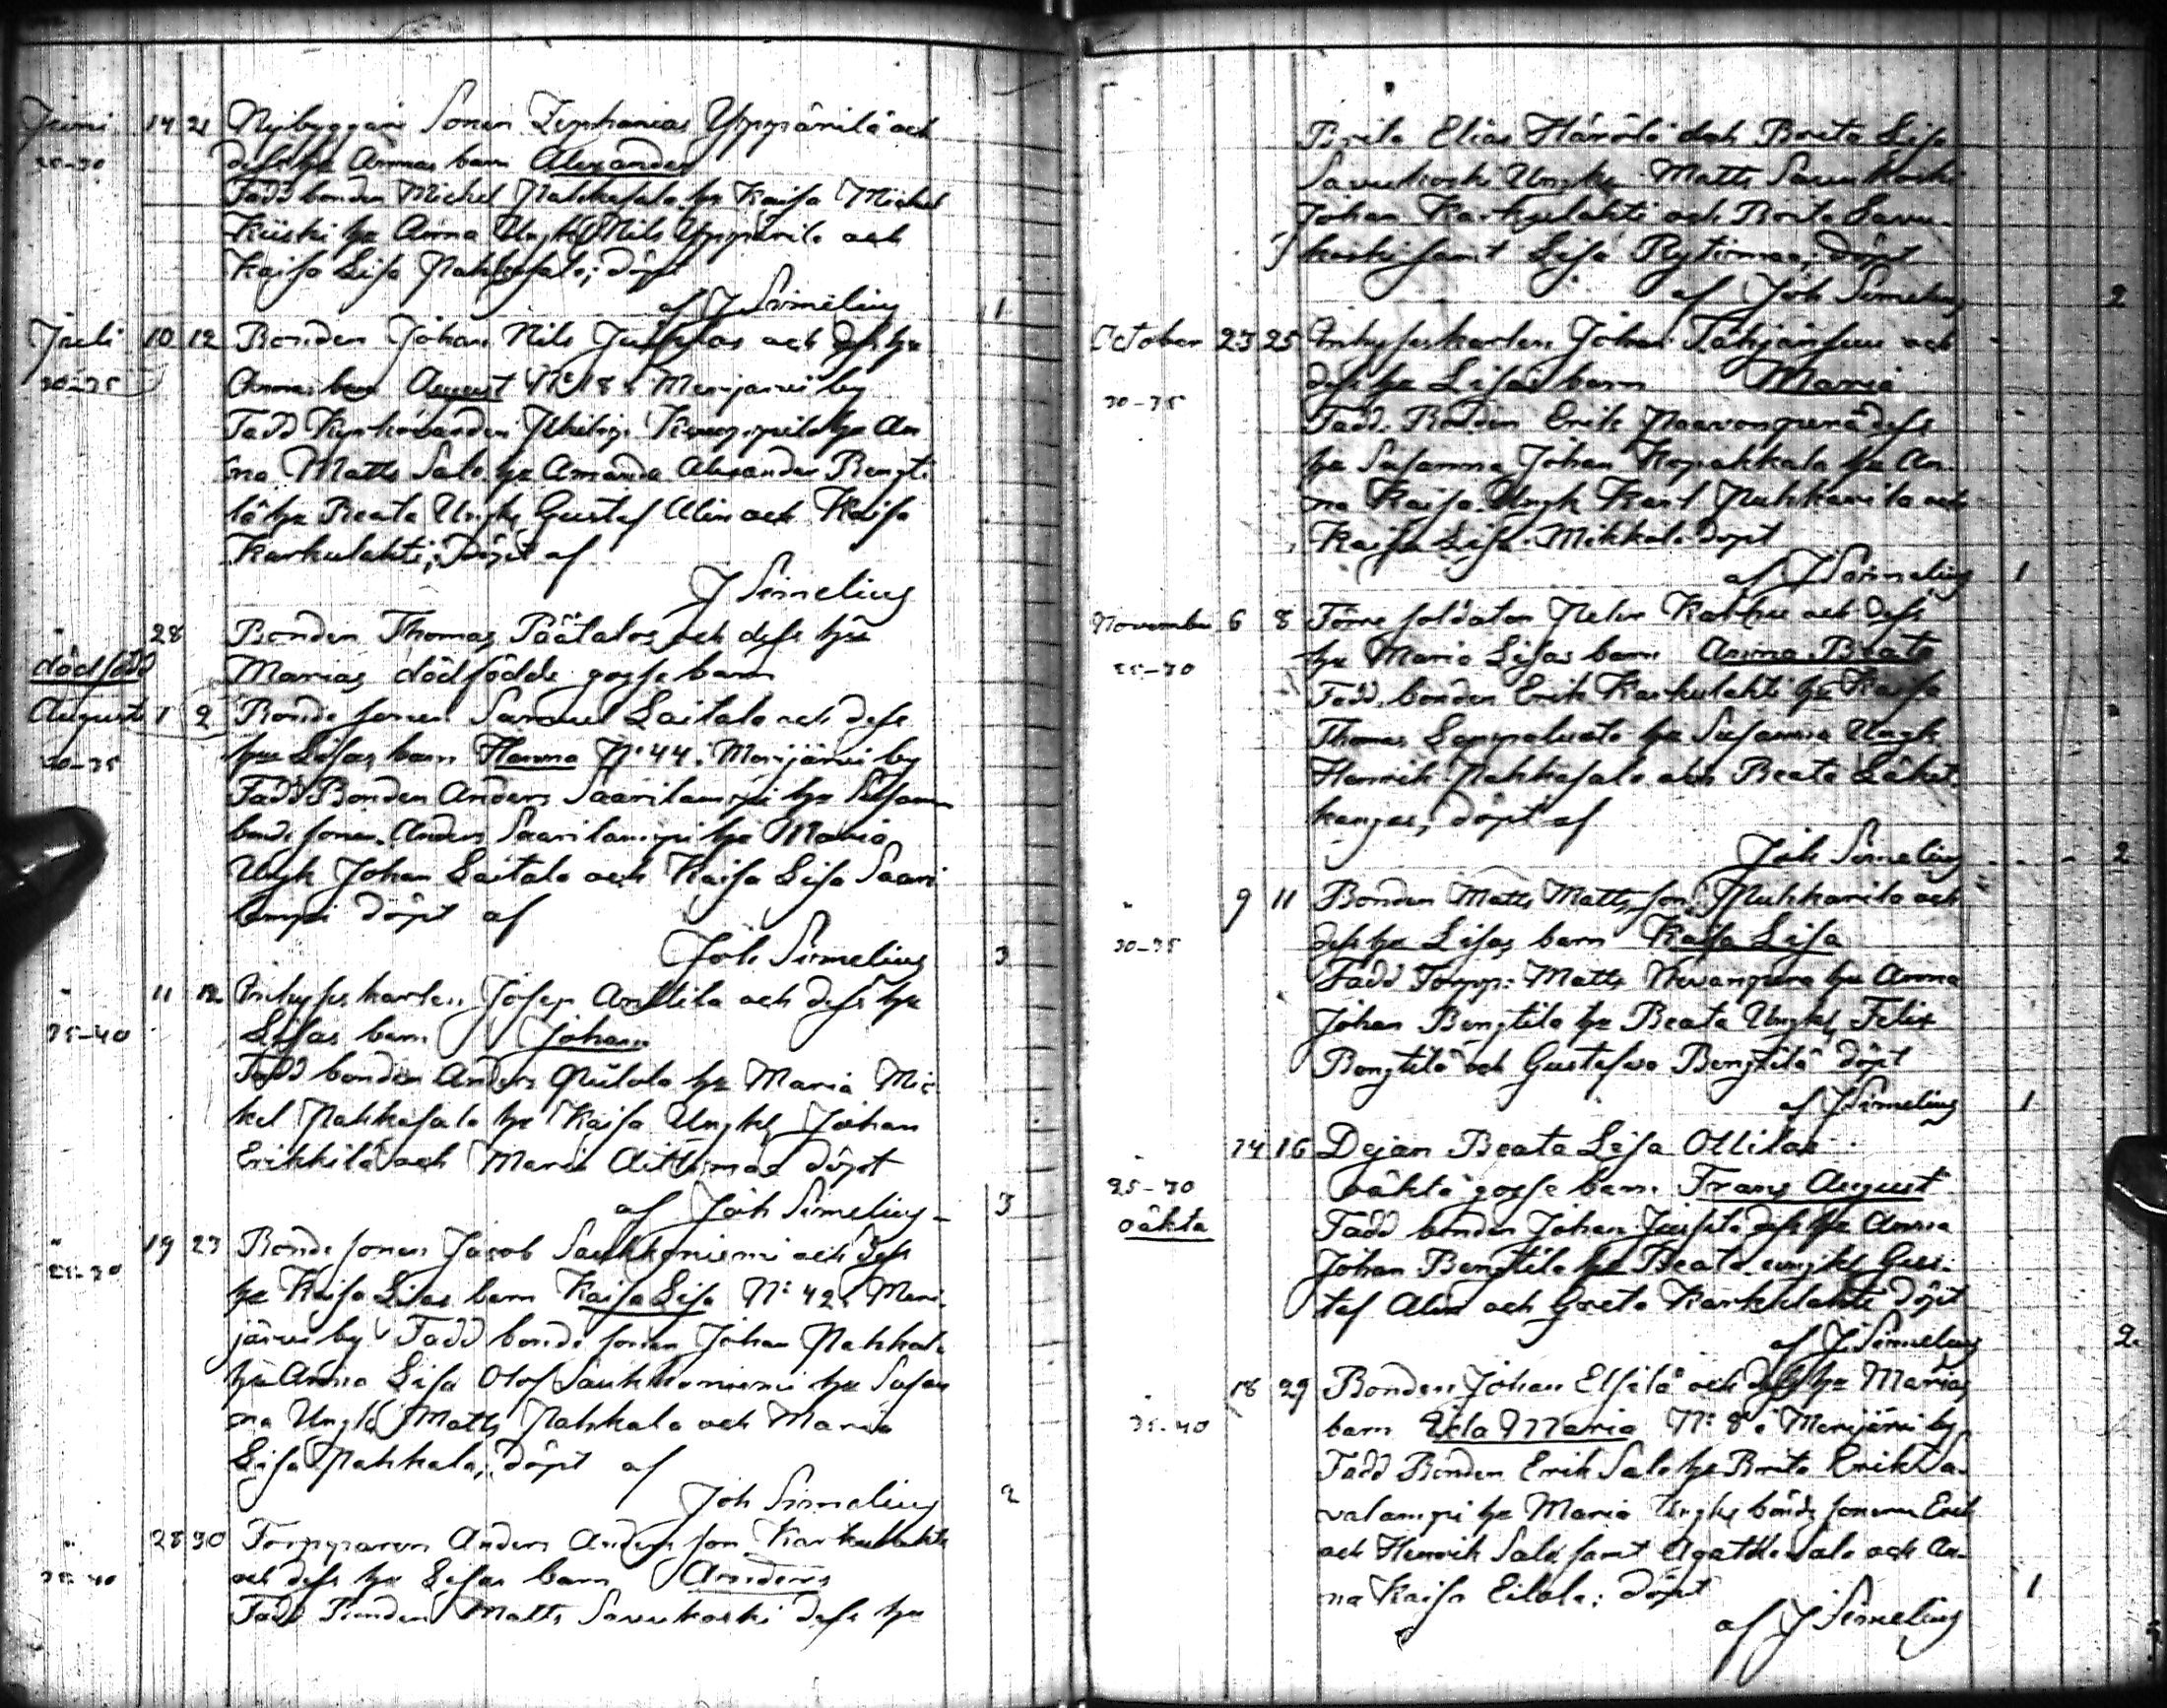 Juni 14 21 Nybyggare Sonen Zephanias Yppärilä och
25-30 dess hu Annas barn Alexander
Fadd bonden Michel Pahkasalo hu Kaisa Michel
Kiiski hu Anna Ungk Nils Yppärilä och
Kaisa Lisa Pahkasalo; döpt
af J Simelius 1
Juli 10 12 Bonden Johan Nils och dess hu
30-35 Annas barn August No 18 Merijärvi by
Fadd hu An
na Matts Salo hu Amanda Alexander Bengti
lä hu Beata Ungk Gustaf Alin och Kaisa
Karkulahti; döpt af
J Simelius
" 28 Bonden Thomas Päätalos och dess hu
dödfödd Marias dödfödde gosse barn
Augusti 1 2 Bonde sonen Samuel Laitala och dess
30-35 hu Lisas barn Hanna No 44 Merijärvi by
Fadd Bonden Anders Saarilampi hu Susanna
bonde sonen Anders Saarilampi hu Maria
Ungk Johan Laitala och Kaisa Lisa Saari
lampi döpt af
Joh Simelius 3
" 11 12 Inhyses karlen Josep Anttila och dess hu
35-40 Lisas barn Johan
Fadd bonden Anders hu Maria Mic
kel Pahkasalo hu Kaisa Ungk Johan
Erikkilä och Maria döpt
af Joh Simelius 3
" 19 23 Bonde sonen Jacob Saukkoniemi och dess
25-30 hu Kaisa Lisas barn Kaisa Lisa No 42 Meri
järvi by Fadd bonde sonen Johan Pahkala
hu Anna Lisa Olof Saukkoniemi hu Susan
na Ungk Matts Pahkala och Maria
Lisa Pahkala; döpt af
Joh Simelius 2
" 28 30 Torpparen Anders Anders son Karkulahti
35-40 och dess hu Lisas barn Anders
Fadd Bonden Matts Savukoski dess hu
Brita Elias Härölä och Brita Lisa
Savukoski Ungk Matts Savukoski
Johan Karkulahti och Brita Savu-
koski samt Lisa Rytinmaa; döpt
af Joh Simelius 2
October 23 25 Inhyses karlen Johan och
30-35 dess hu Lisas barn Maria
Fadd. Bonden Erik Paavonperä dess
hu Susanna Johan Kopakkala hu An-
na Kaisa Ungk Karl Puhkarila och
Kaisa Lisa Mikkala döpt
af J Simelius 1
November 6 8 Förre soldaten Petr och dess
25-30 hu Maria Lisas barn Anna Beata
Fadd. bonden Erik Karkulahti hu Kaisa
Thomas hu Susanna Ungk
Henrik Pahkasalo och Beata
kangas; döpt af
Joh Simelius 2
" 9 11 Bonden Matts Matts son Puhkarila och
30-35 dess hu Lisas barn Kaisa Lisa
Fadd Torpp: Matts Nevanperä hu Anna
Johan Bengtilä hu Beata Ungk Felix
Bengtilä och Gustafva Bengtilä döpt
af J Simelius 1
" 14 16 Pejan Beata Lisa Ollilas
25-30 oäkta gosse barn Frans August
oäkta Fadd bonden Johan dess hu Anna
Johan Bengtilä hu Beata ungk Gus-
taf Alin och Greta Karkulahti döpt
af J. Simelius 2
" 18 29 Bonden Johan Elsilä och dess hu Marias
35-40 barn Maria No 8 Merijärvi by
Fadd Bonden Erik Salo hu Brita Erik Sa-
valampi hu Maria Ungk bonde sonerne Erik
och Henrik Salo samt Agatha Salo och An-
na Kaisa Eilola; döpt
af J Simelius 1